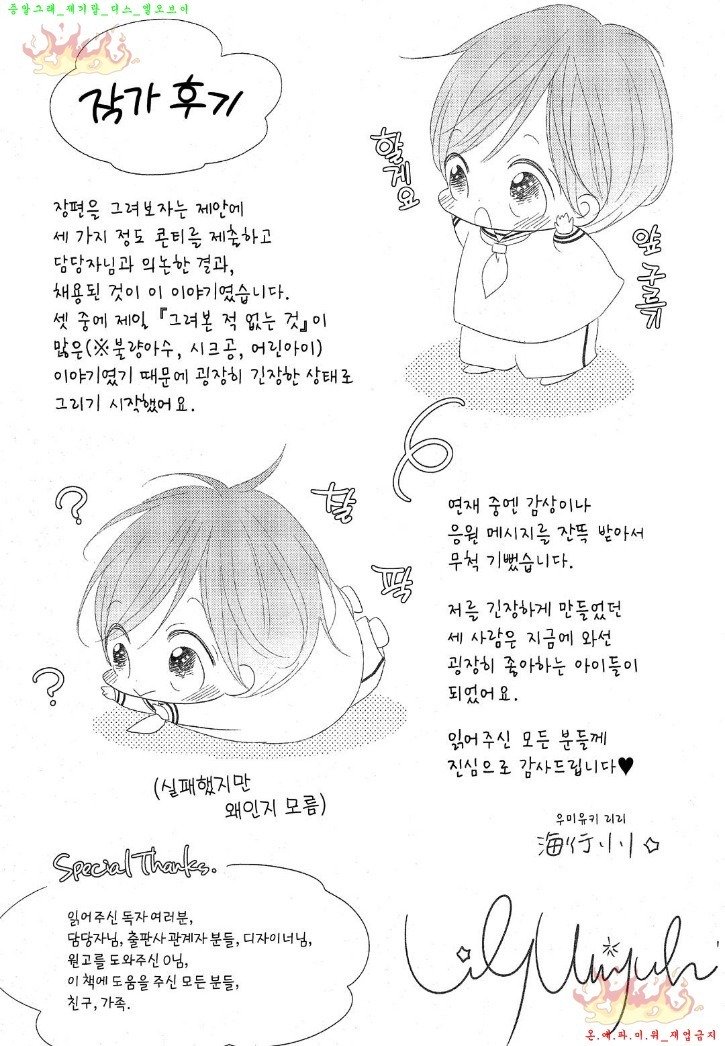 증말그래_재기랄_덕스_엘오브이
작가 후기
할게요
앞 구르기
장편을 그려보자는 제안에
세 가지 정도 콘티를 제출하고
담당자님과 의논한 결과,
채용된 것이 이 이야기였습니다.
셋 중에 제일 『그려본 적 없는 것』이
많은(※불량아수, 시크공, 어린아이)
이야기였기 때문에 굉장히 긴장한 상태로
그리기 시작했어요.
?
?
팍
연재 중엔 감상이나
응원 메시지를 잔뜩 받아서
무척 기뻤습니다.
저를 긴장하게 만들었던
세 사람은 지금에 와선
굉장히 좋아하는 아이들이
되었어요.
읽어주신 모든 분들께
진심으로 감사드립니다♥
(실패했지만
왜인지 모름)
우미유키 리리
海行リリ
Special Thanks.
읽어주신 독자 여러분,
담당자님, 출판사 관계자 분들, 디자이너님,
원고를 도와주신 O님,
이 책에 도움을 주신 모든 분들,
친구, 가족.
온.예.파.미.뤄_재업금지